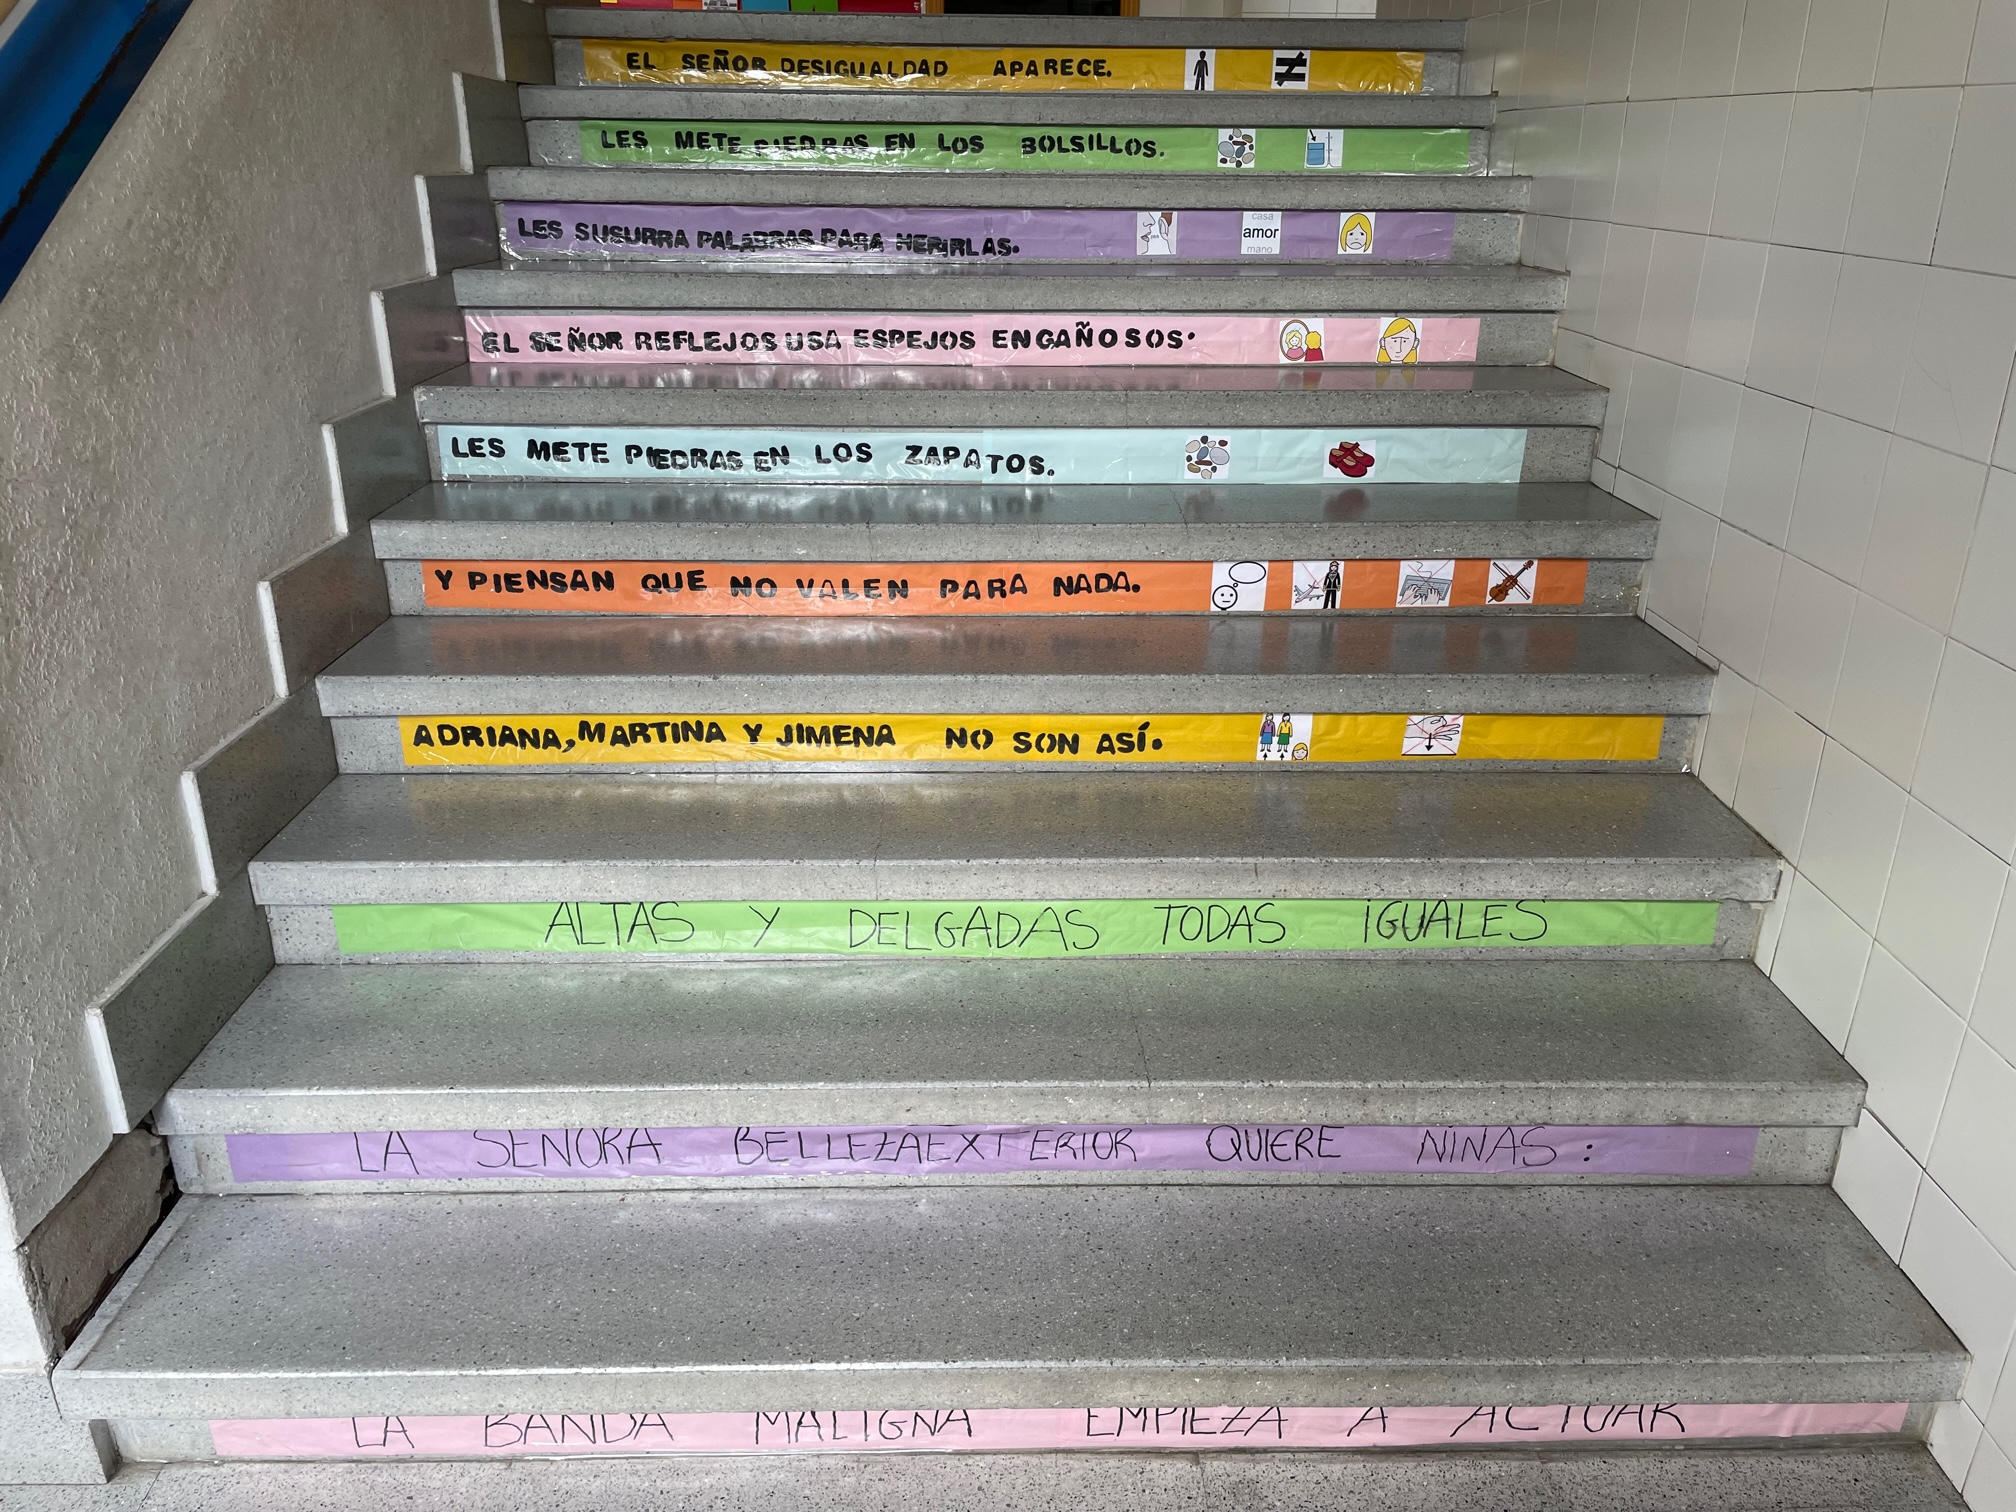 EL SEÑOR DESIGUALDAD APARECE.
LES METE PIEDRAS EN LOS BOLSILLOS.
LES SUSURRA PALABRAS PARA HERIRLAS.
casa
amor
mano
EL SEÑOR REFLEJOS USA ESPEJOS ENGAÑOSOS.
LES METE PIEDRAS EN LOS ZAPATOS.
Y PIENSAN QUE NO VALEN PARA NADA.
ADRIANA, MARTINA Y JIMENA NO SON ASÍ.
ALTAS Y DELGADAS TODAS IGUALES
LA SEÑORA BELLEZA EXTERIOR QUIERE NIÑAS:
LA BANDA MALIGNA EMPIEZA A ACTUAR